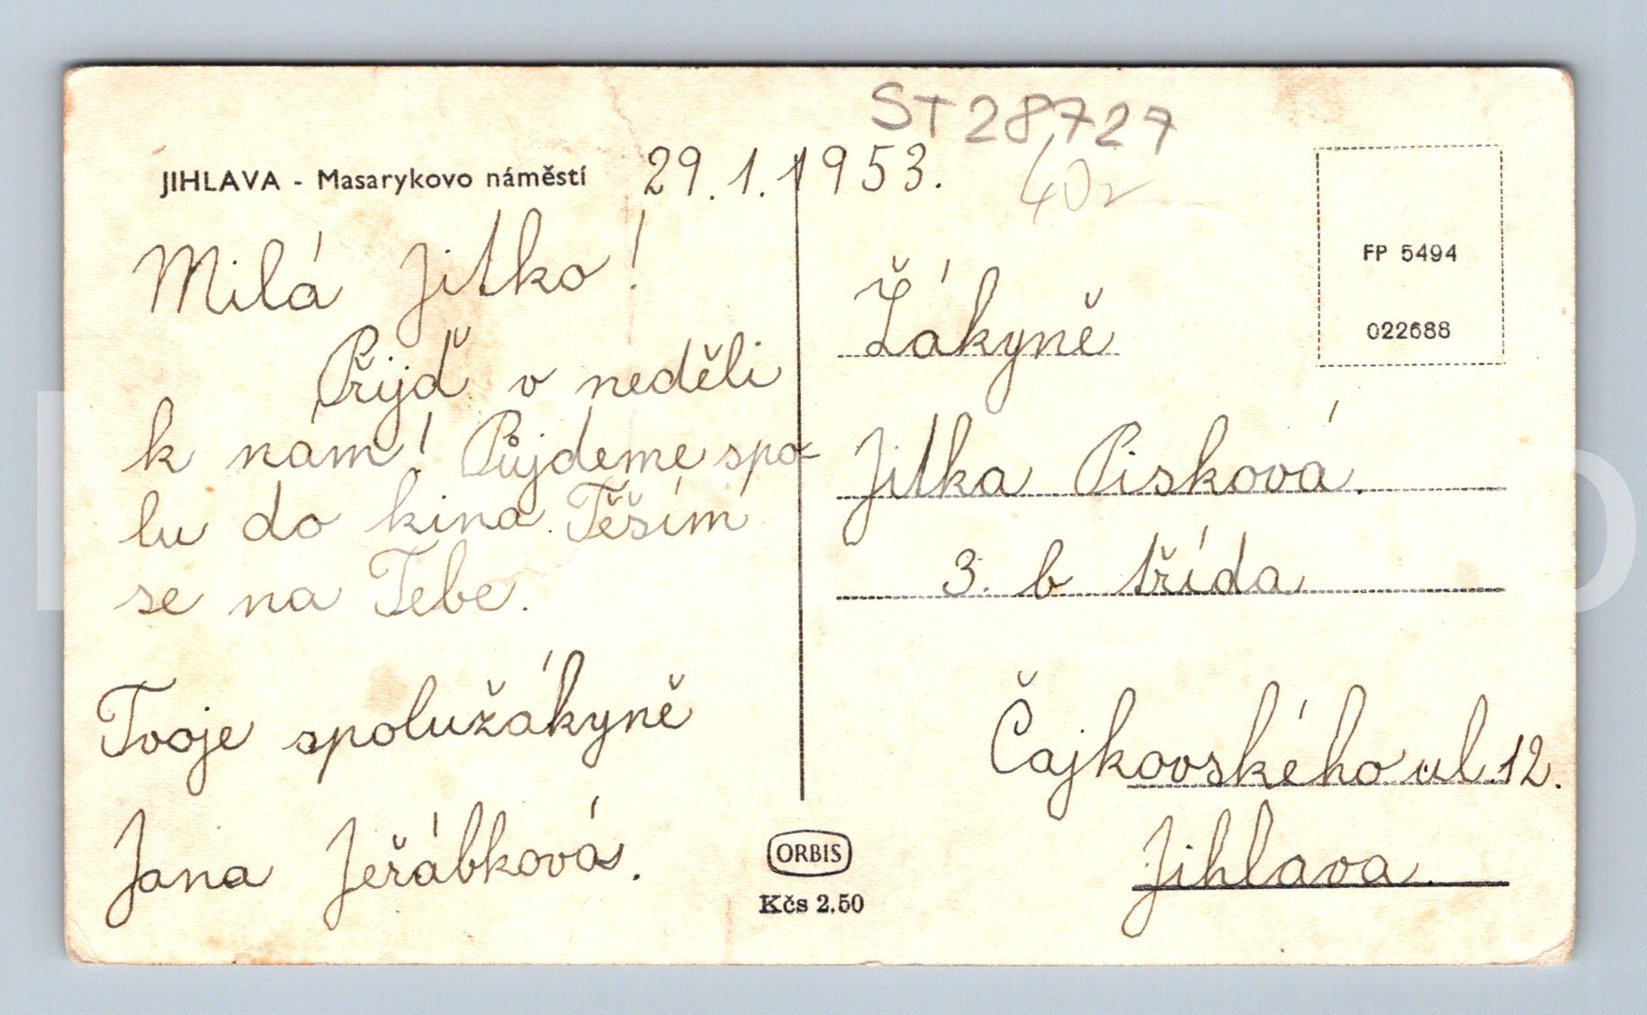 ST28727
JIHLAVA - Masarykovo náměstí
29.1.1953.
Milá Jitko!
Přijď v neděli
k nám! Půjdeme spo-
lu do kina. Těším
se na Tebe.
Tvoje spolužákyně
Jana Jeřábková.
ORBIS
Kčs 2.50
FP 5494
022688
Žákyně
Jitka Pisková.
3. b třída
Čajkovského ul. 12.
Jihlava.